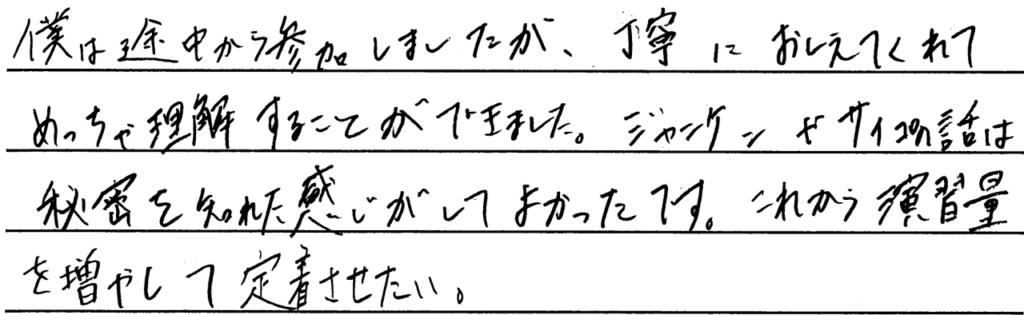 僕は途中から参加しましたが、丁寧におしえてくれて
めっちゃ理解することができました。ジャンケンやサイコロの話は
秘密を知れた感じがしてよかったです。これから演習量
を増やして定着させたい。